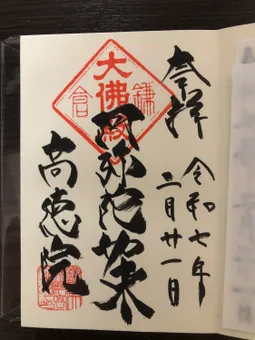 奉拝
令和七年
二月廿一日
阿弥陀如来
高徳院
大佛殿
鎌倉